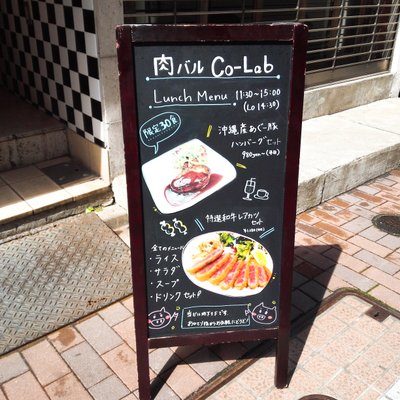 肉バル Co-Lab
Lunch Menu 11:30~15:00
(Lo 14:30)
限定30食
沖縄産あぐー豚
ハンバーグセット
980yen~(税込)
特選和牛レアカツ
セット
全てのメニューに
・ライス
・サラダ
・スープ
・ドリンクセット